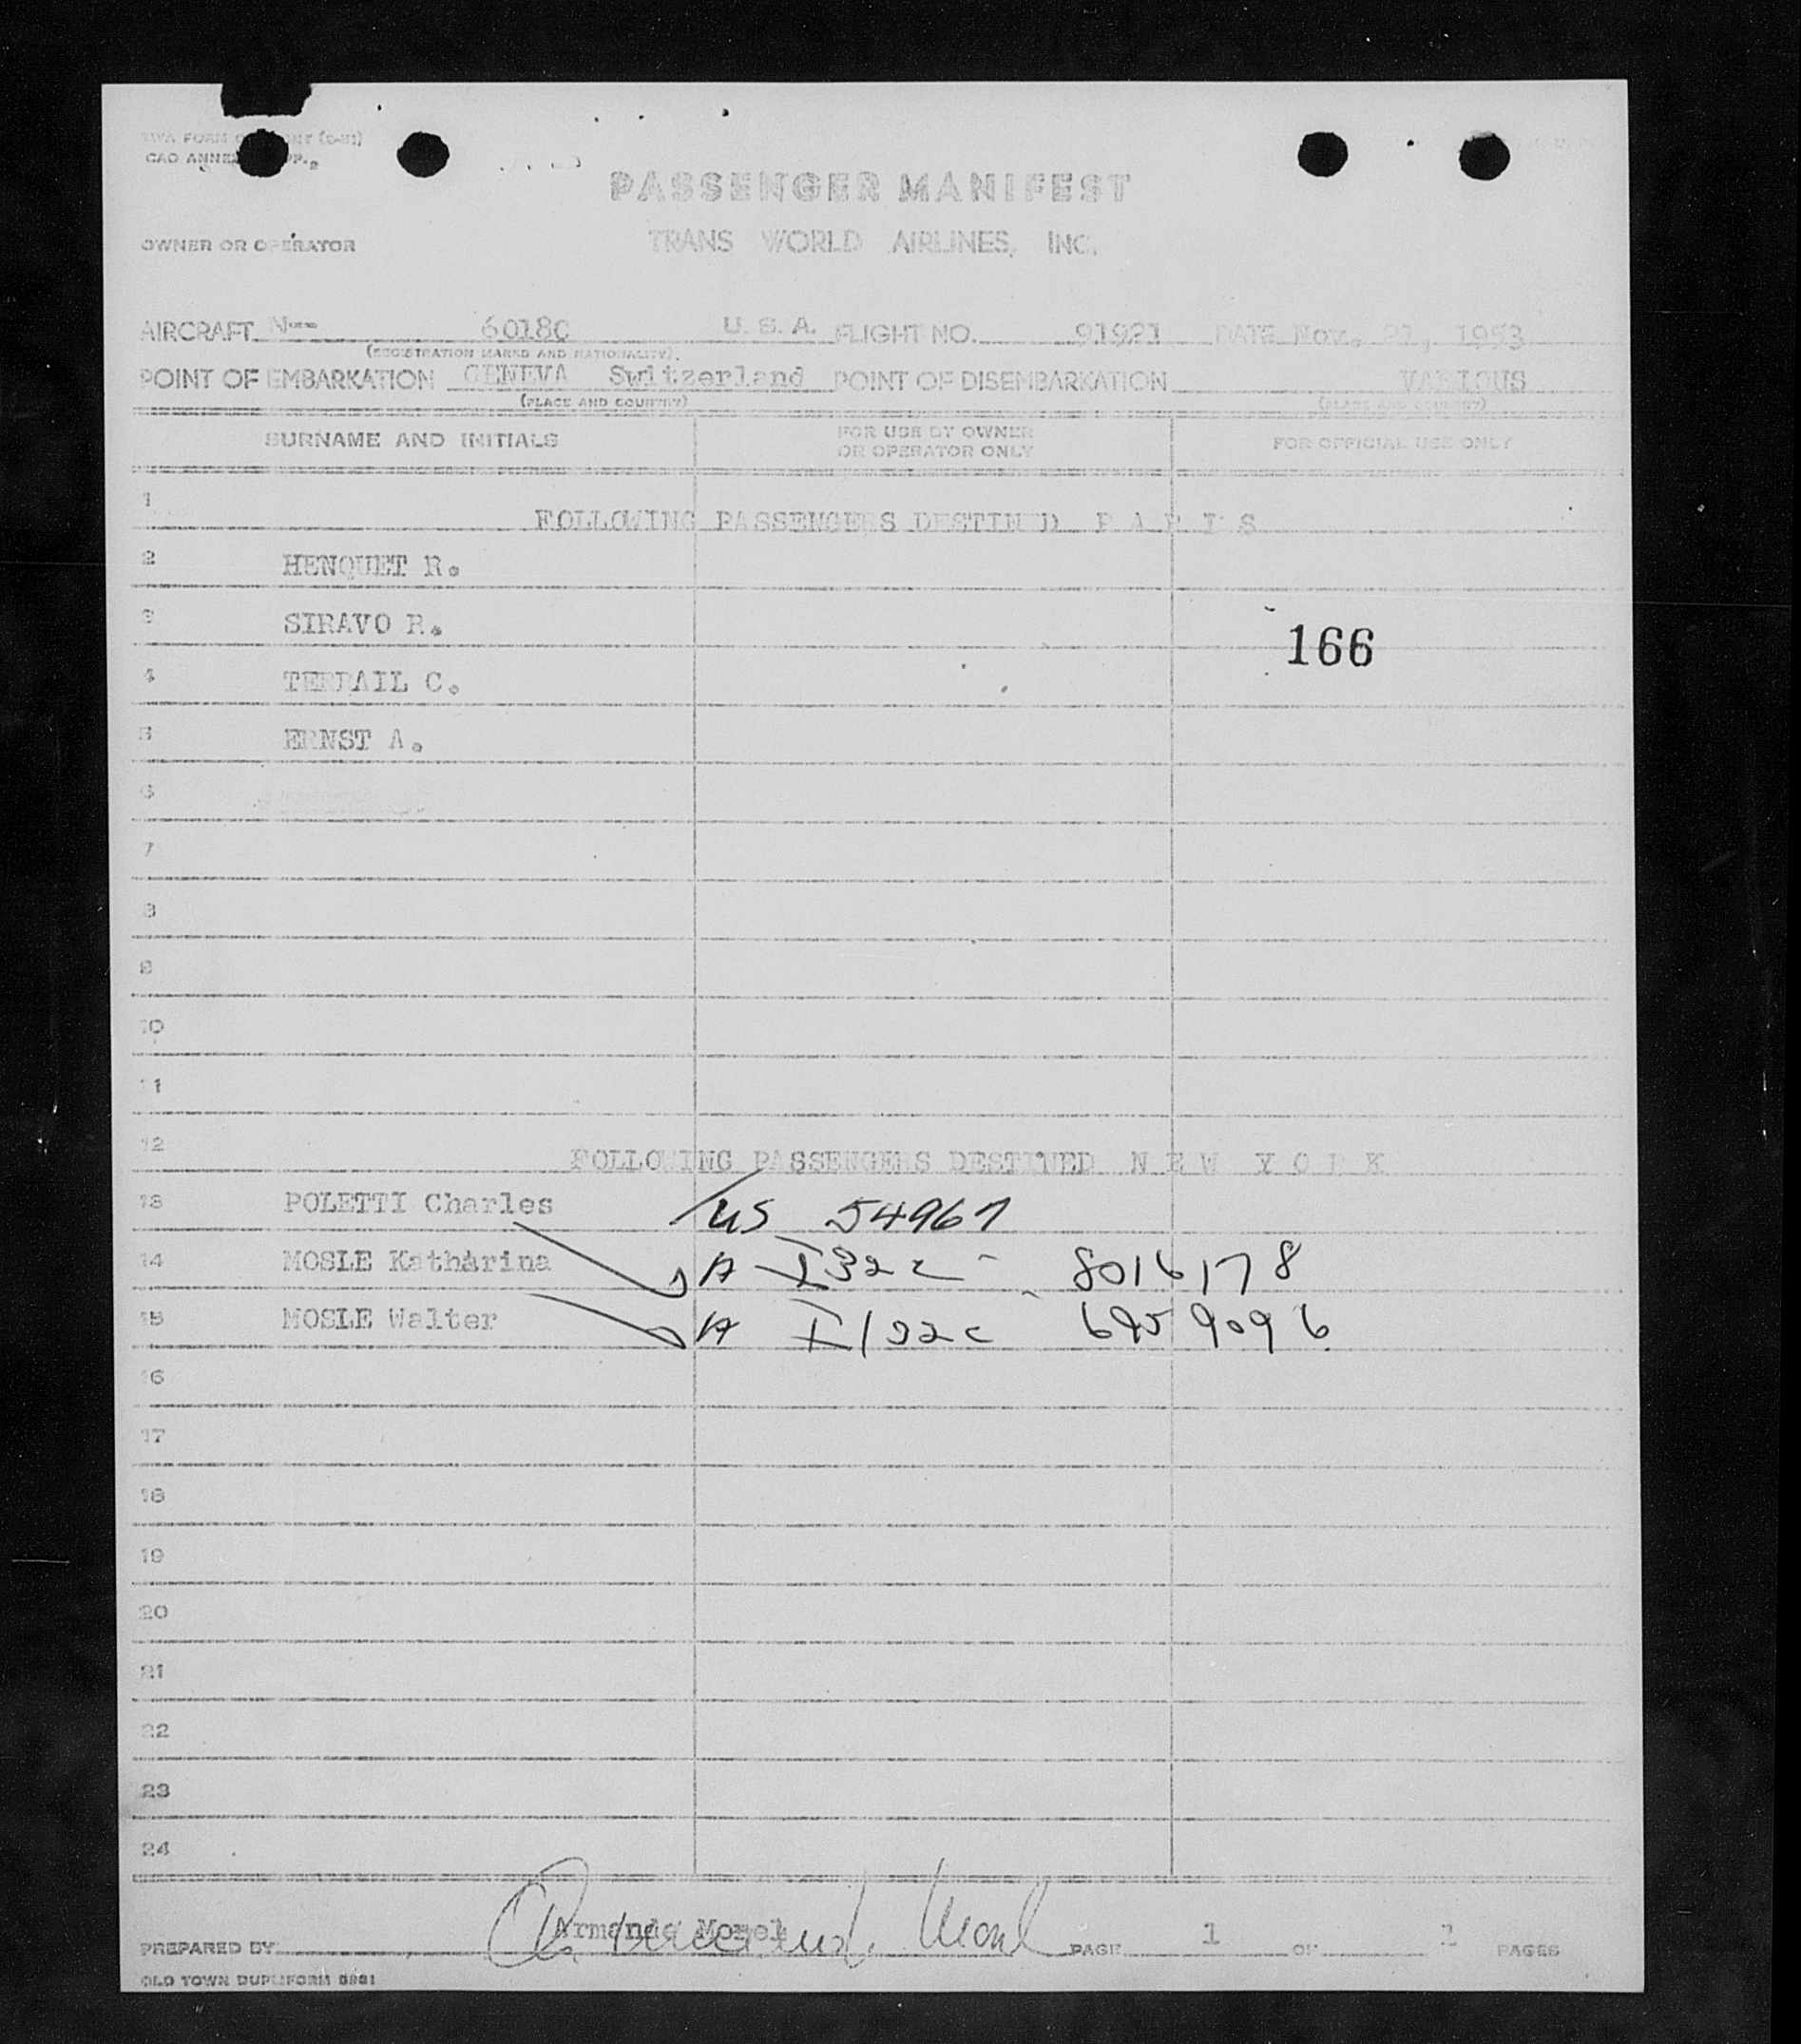 PASSENGER MANIFEST
OWNER OR OPERATOR TRANS WORLD AIRLINES, INC.
AIRCRAFT N-- 6018C U. S. A. FLIGHT NO. 91921 DATE Nov. 21, 1953
(REGISTRATION MARKS AND NATIONALITY)
POINT OF EMBARKATION GENEVA Switzerland POINT OF DISEMBARKATION VARIOUS
(PLACE AND COUNTRY) (PLACE AND COUNTRY)
SURNAME AND INITIALS FOR USE BY OWNER OR OPERATOR ONLY FOR OFFICIAL USE ONLY
1 FOLLOWING PASSENGERS DESTINED P A R I S
2 HENQUET R.
3 SIRAVO R.
166
4 TERRAIL C.
5 ERNST A.
6
7
8
9
10
11
12 FOLLOWING PASSENGERS DESTINED N E W Y O R K
13 POLETTI Charles US 54967
14 MOSLE Katharina A 8016178
15 MOSLE Walter A 6959096
16
17
18
19
20
21
22
23
24
PREPARED BY Armando Morel PAGE 1 OF 1 PAGES
OLD TOWN DUPLIFORM